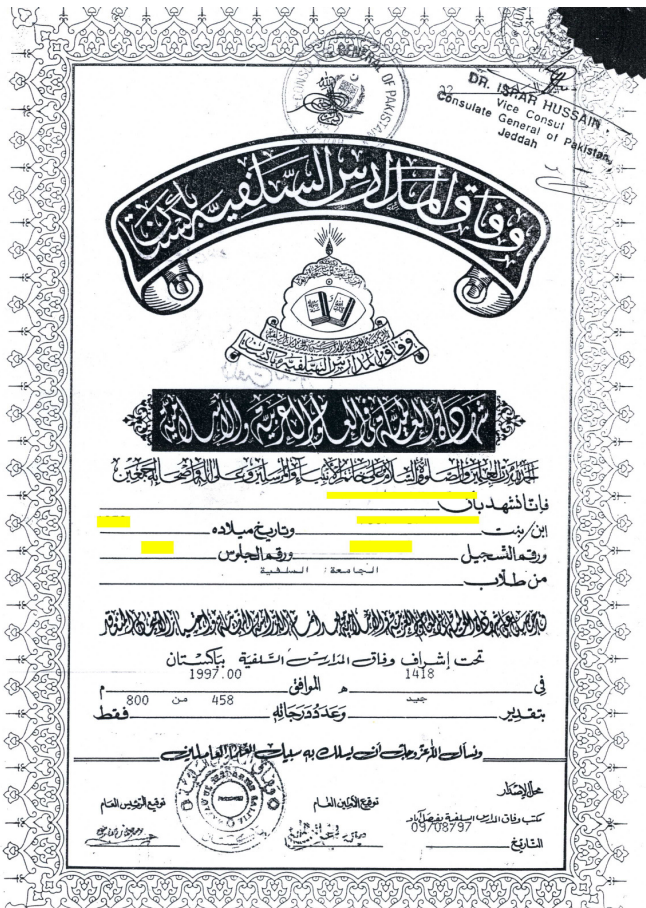 CONSULATE GENERAL OF PAKISTAN
DR. ISHAR HUSSAIN.
Vice Consul
Consulate General of Pakistan,
Jeddah
وفاق المدارس السلفية باكستان
وفاق المدارس السلفية باكستان
شهادة العالمية في العلوم العربية والإسلامية
الحمد لله رب العالمين والصلوة والسلام على خاتم الأنبياء والمرسلين وعلى آله وأصحابه أجمعين
فإننا نشهد بأن
ابن/بنت وتاريخ ميلاده
ورقم التسجيل ورقم الجلوس
من طلاب الجامعة السلفية
تحت إشراف وفاق المدارس السلفية بباكستان
في 1418 ه الموافق 1997.00 م
بتقدير جيد وعدد درجاته 458 من 800 فقط
ونسأل الله عز وجل أن يسلك به سبيل العلماء العاملين
محل الإصدار
توقيع الأمين العام
توقيع الرئيس العام
مكتب وفاق المدارس السلفية بفيصل آباد
09/08797
التاريخ